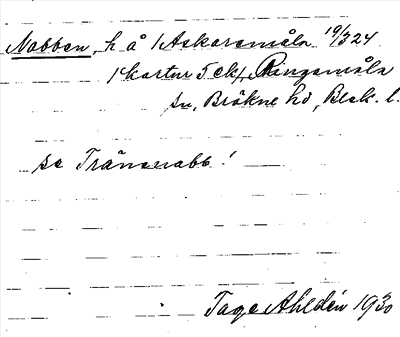 Nabben, h å 1 Askaremåla 19/3 24
1 kartur 5 ck, Ringamåla
sn, Bräkne hd, Blek. l.
se Tränsnabb!
Tage Ahldén 1930